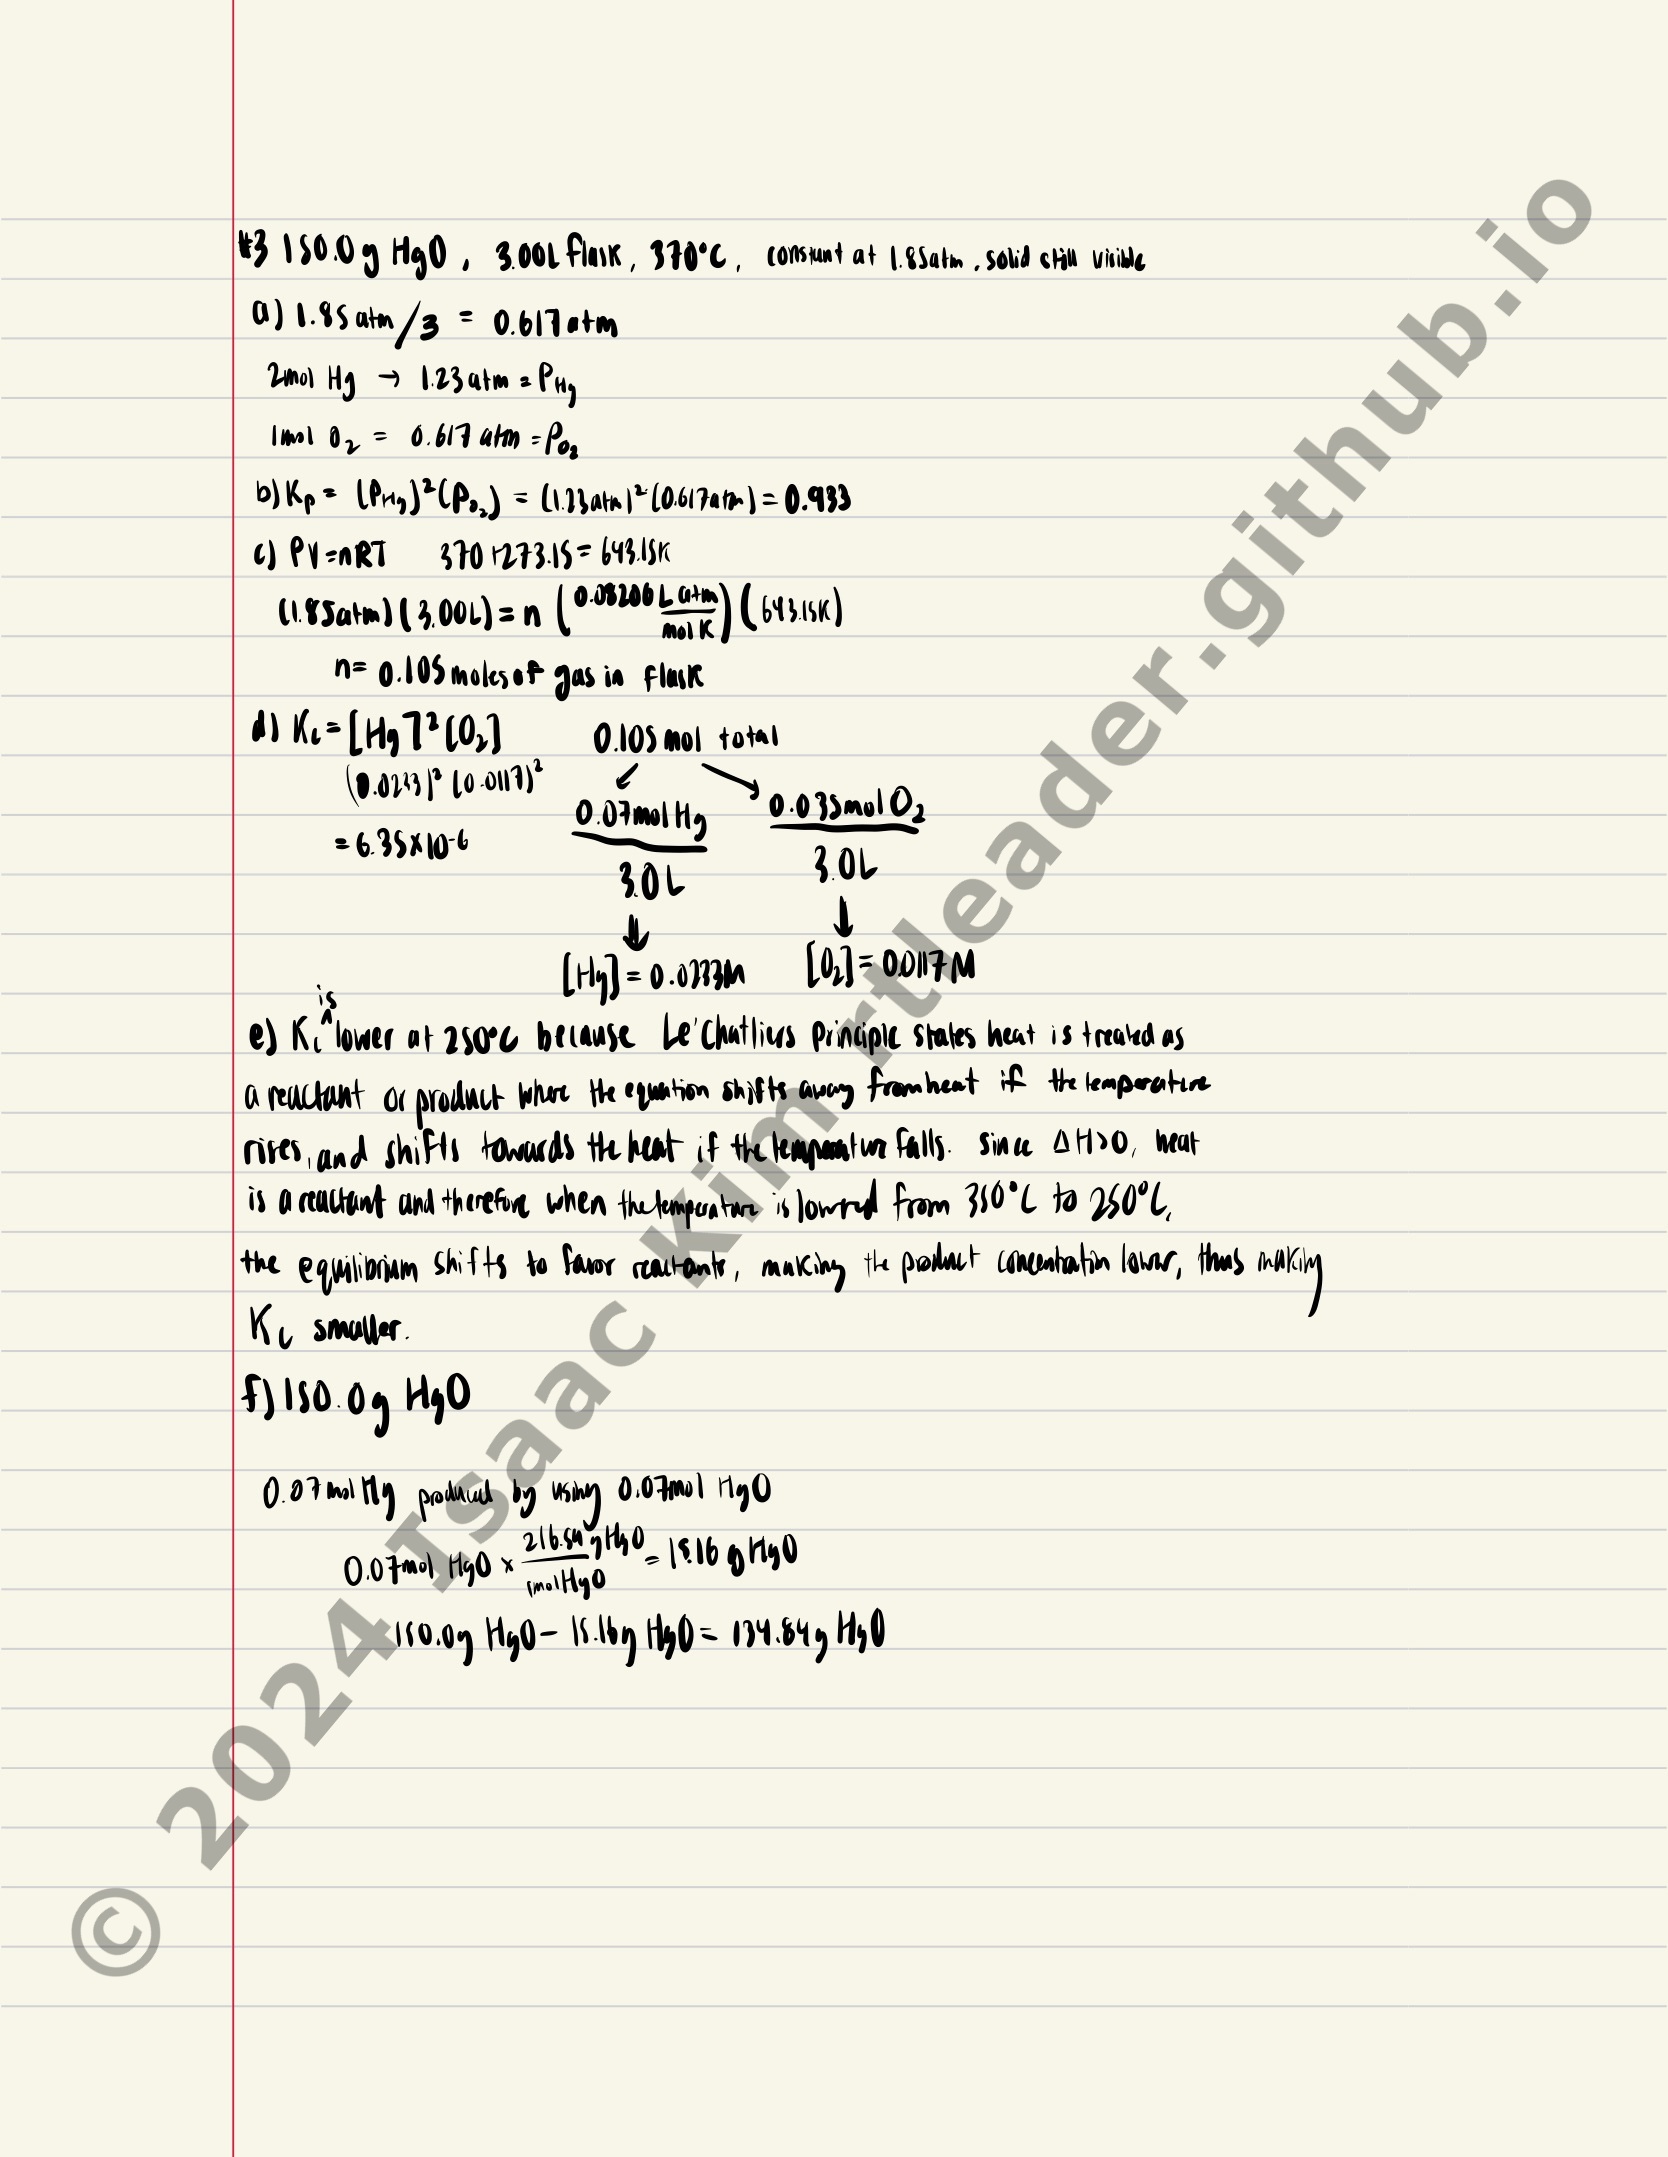 #3 150.0g HgO, 3.00L flask, 370°C, constant at 1.85atm, solid still visible
a) 1.85 atm/3 = 0.617 atm
2mol Hg → 1.23 atm = P_Hg
1mol O₂ = 0.617 atm = P_O₂
b) Kp = (P_Hg)²(P_O₂) = (1.23atm)²(0.617atm) = 0.933
c) PV=nRT 370+273.15 = 643.15K
(1.85atm)(3.00L) = n (0.08206 L atm / mol K)(643.15K)
n= 0.105 moles of gas in flask
d) Kc = [Hg]²[O₂] 0.105 mol total
(0.0233)² (0.0117)² 0.07mol Hg 0.035mol O₂
= 6.35×10⁻⁶ 3.0L 3.0L
[Hg] = 0.0233M [O₂] = 0.0117M
e) Kc is lower at 250°C because Le'Chatliers Principle states heat is treated as
a reactant or product where the equation shifts away from heat if the temperature
rises, and shifts towards the heat if the temperature falls. Since ΔH>0, heat
is a reactant and therefore when the temperature is lowered from 350°C to 250°C,
the equilibrium shifts to favor reactants, making the product concentration lower, thus making
Kc smaller.
f) 150.0g HgO
0.07mol Hg produced by using 0.07mol HgO
0.07mol HgO × 216.59 g HgO / 1mol HgO = 15.16 g HgO
150.0g HgO − 15.16g HgO = 134.84g HgO
© 2024 Isaac Kim rtleader.github.io